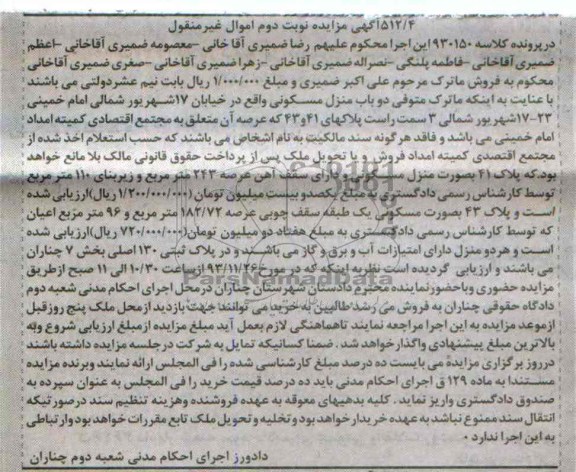 ۵۱۲/۴آگهی مزایده نوبت دوم اموال غیرمنقول
درپرونده کلاسه ۹۳۰۱۵۰ این اجرا محکوم علیهم رضا ضمیری آقا خانی –معصومه ضمیری آقاخانی –اعظم
ضمیری آقاخانی –فاطمه پلنگی –نصراله ضمیری آقاخانی –زهرا ضمیری آقاخانی –صغری ضمیری آقاخانی
محکوم به فروش ماترک مرحوم علی اکبر ضمیری و مبلغ ۱/۰۰۰/۰۰۰ ریال بابت نیم عشردولتی می باشند
با عنایت به اینکه ماترک متوفی دو باب منزل مسکونی واقع در خیابان ۱۷شهریور شمالی امام خمینی
۲۳–۱۷شهریور شمالی ۳ سمت راست پلاکهای ۴۱و۴۳ که عرصه آن متعلق به مجتمع اقتصادی کمیته امداد
امام خمینی می باشد و فاقد هرگونه سند مالکیت به نام اشخاص می باشند که حسب استعلام اخذ شده از
مجتمع اقتصدی کمیته امداد فروش و یا تحویل ملک پس از پرداخت حقوق قانونی مالک بلا مانع خواهد
بود.که پلاک ۴۱ بصورت منزل مسکونی و دارای سقف آهن عرصه ۲۴۳ متر مربع و زیربنای ۱۱۰ متر مربع
توسط کارشناس رسمی دادگستری به مبلغ یکصدو بیست میلیون تومان(۱/۲۰۰/۰۰۰/۰۰۰ ریال)ارزیابی شده
است و پلاک ۴۳ بصورت مسکونی یک طبقه سقف چوبی عرصه ۱۸۲/۷۲ متر مربع و ۹۶ متر مزبع اعیان
که توسط کارشناس رسمی دادگستری به مبلغ هفتاد دو میلیون تومان(۷۲۰/۰۰۰/۰۰۰ ریال)ارزیابی شده
است و هردو منزل دارای امتیازات آب و برق و گاز می باشند و در پلاک ثبتی ۱۳۰ اصلی بخش ۷ چناران
می باشند و ارزیابی گردیده است نظربه اینکه که در مورخ ۹۳/۱۱/۲۶ ازساعت ۱۰/۳۰ الی ۱۱ صبح ازطریق
مزایده حضوری وباحضورنماینده محترم دادستان شهرستان چناران درمحل اجرای احکام مدنی شعبه دوم
دادگاه حقوقی چناران به فروش می رسد طالبین به خرید می توانند جهت بازدید ازمحل ملک پنج روزقبل
ازموعد مزایده به این اجرا مراجعه نمایند تاهماهنگی لازم بعمل آید مبلغ مزایده ازمبلغ ارزیابی شروع وبه
بالاترین مبلغ پیشنهادی واگذارخواهد شد . ضمنا کسانیکه تمایل به شرکت درجلسه مزایده داشته باشند
درروز برگزاری مزایده می بایست ده درصد مبلغ کارشناسی شده را فی المجلس ارائه نمایند وبرنده مزایده
مستندا به ماده ۱۲۹ ق اجرای احکام مدنی باید ده درصد قیمت خرید را فی المجلس به عنوان سپرده به
صندوق دادگستری واریز نماید . کلیه بدهیهای معوقه به عهده فروشنده وهزینه تنظیم سند درصورتیکه
انتقال سند ممنوع نباشد به عهده خریدار خواهد بود و تخلیه و تحویل ملک تابع مقررات خواهدبود وارتباطی
به این اجرا ندارد .
دادورز اجرای احکام مدنی شعبه دوم چناران